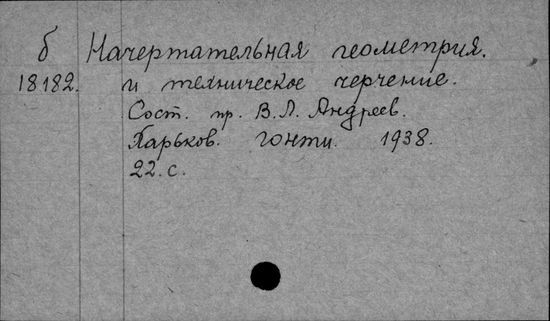 б Начертательная геометрия.
18182. и техническое черчение.
Сост. пр. В.Л. Андреев.
Харьков. гонти. 1938.
22. с.